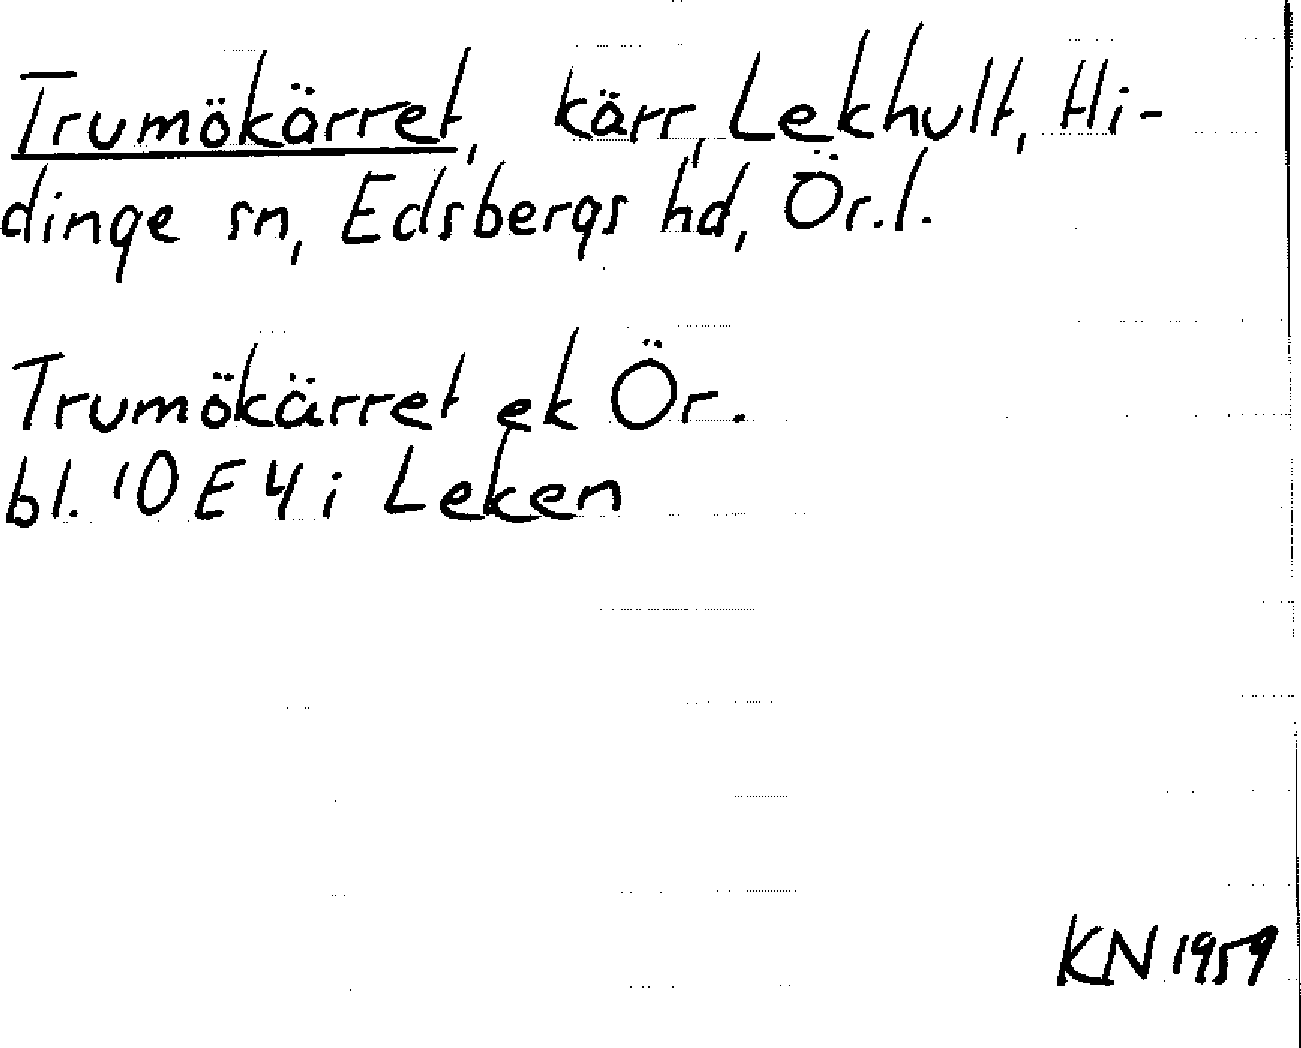 Trumökärret, kärr, Lekhult, Hi-
dinge sn, Edsbergs hd, Ör.l.
Trumökärret ek Ör.
bl. 10 E 4 i Leken
KN 1959